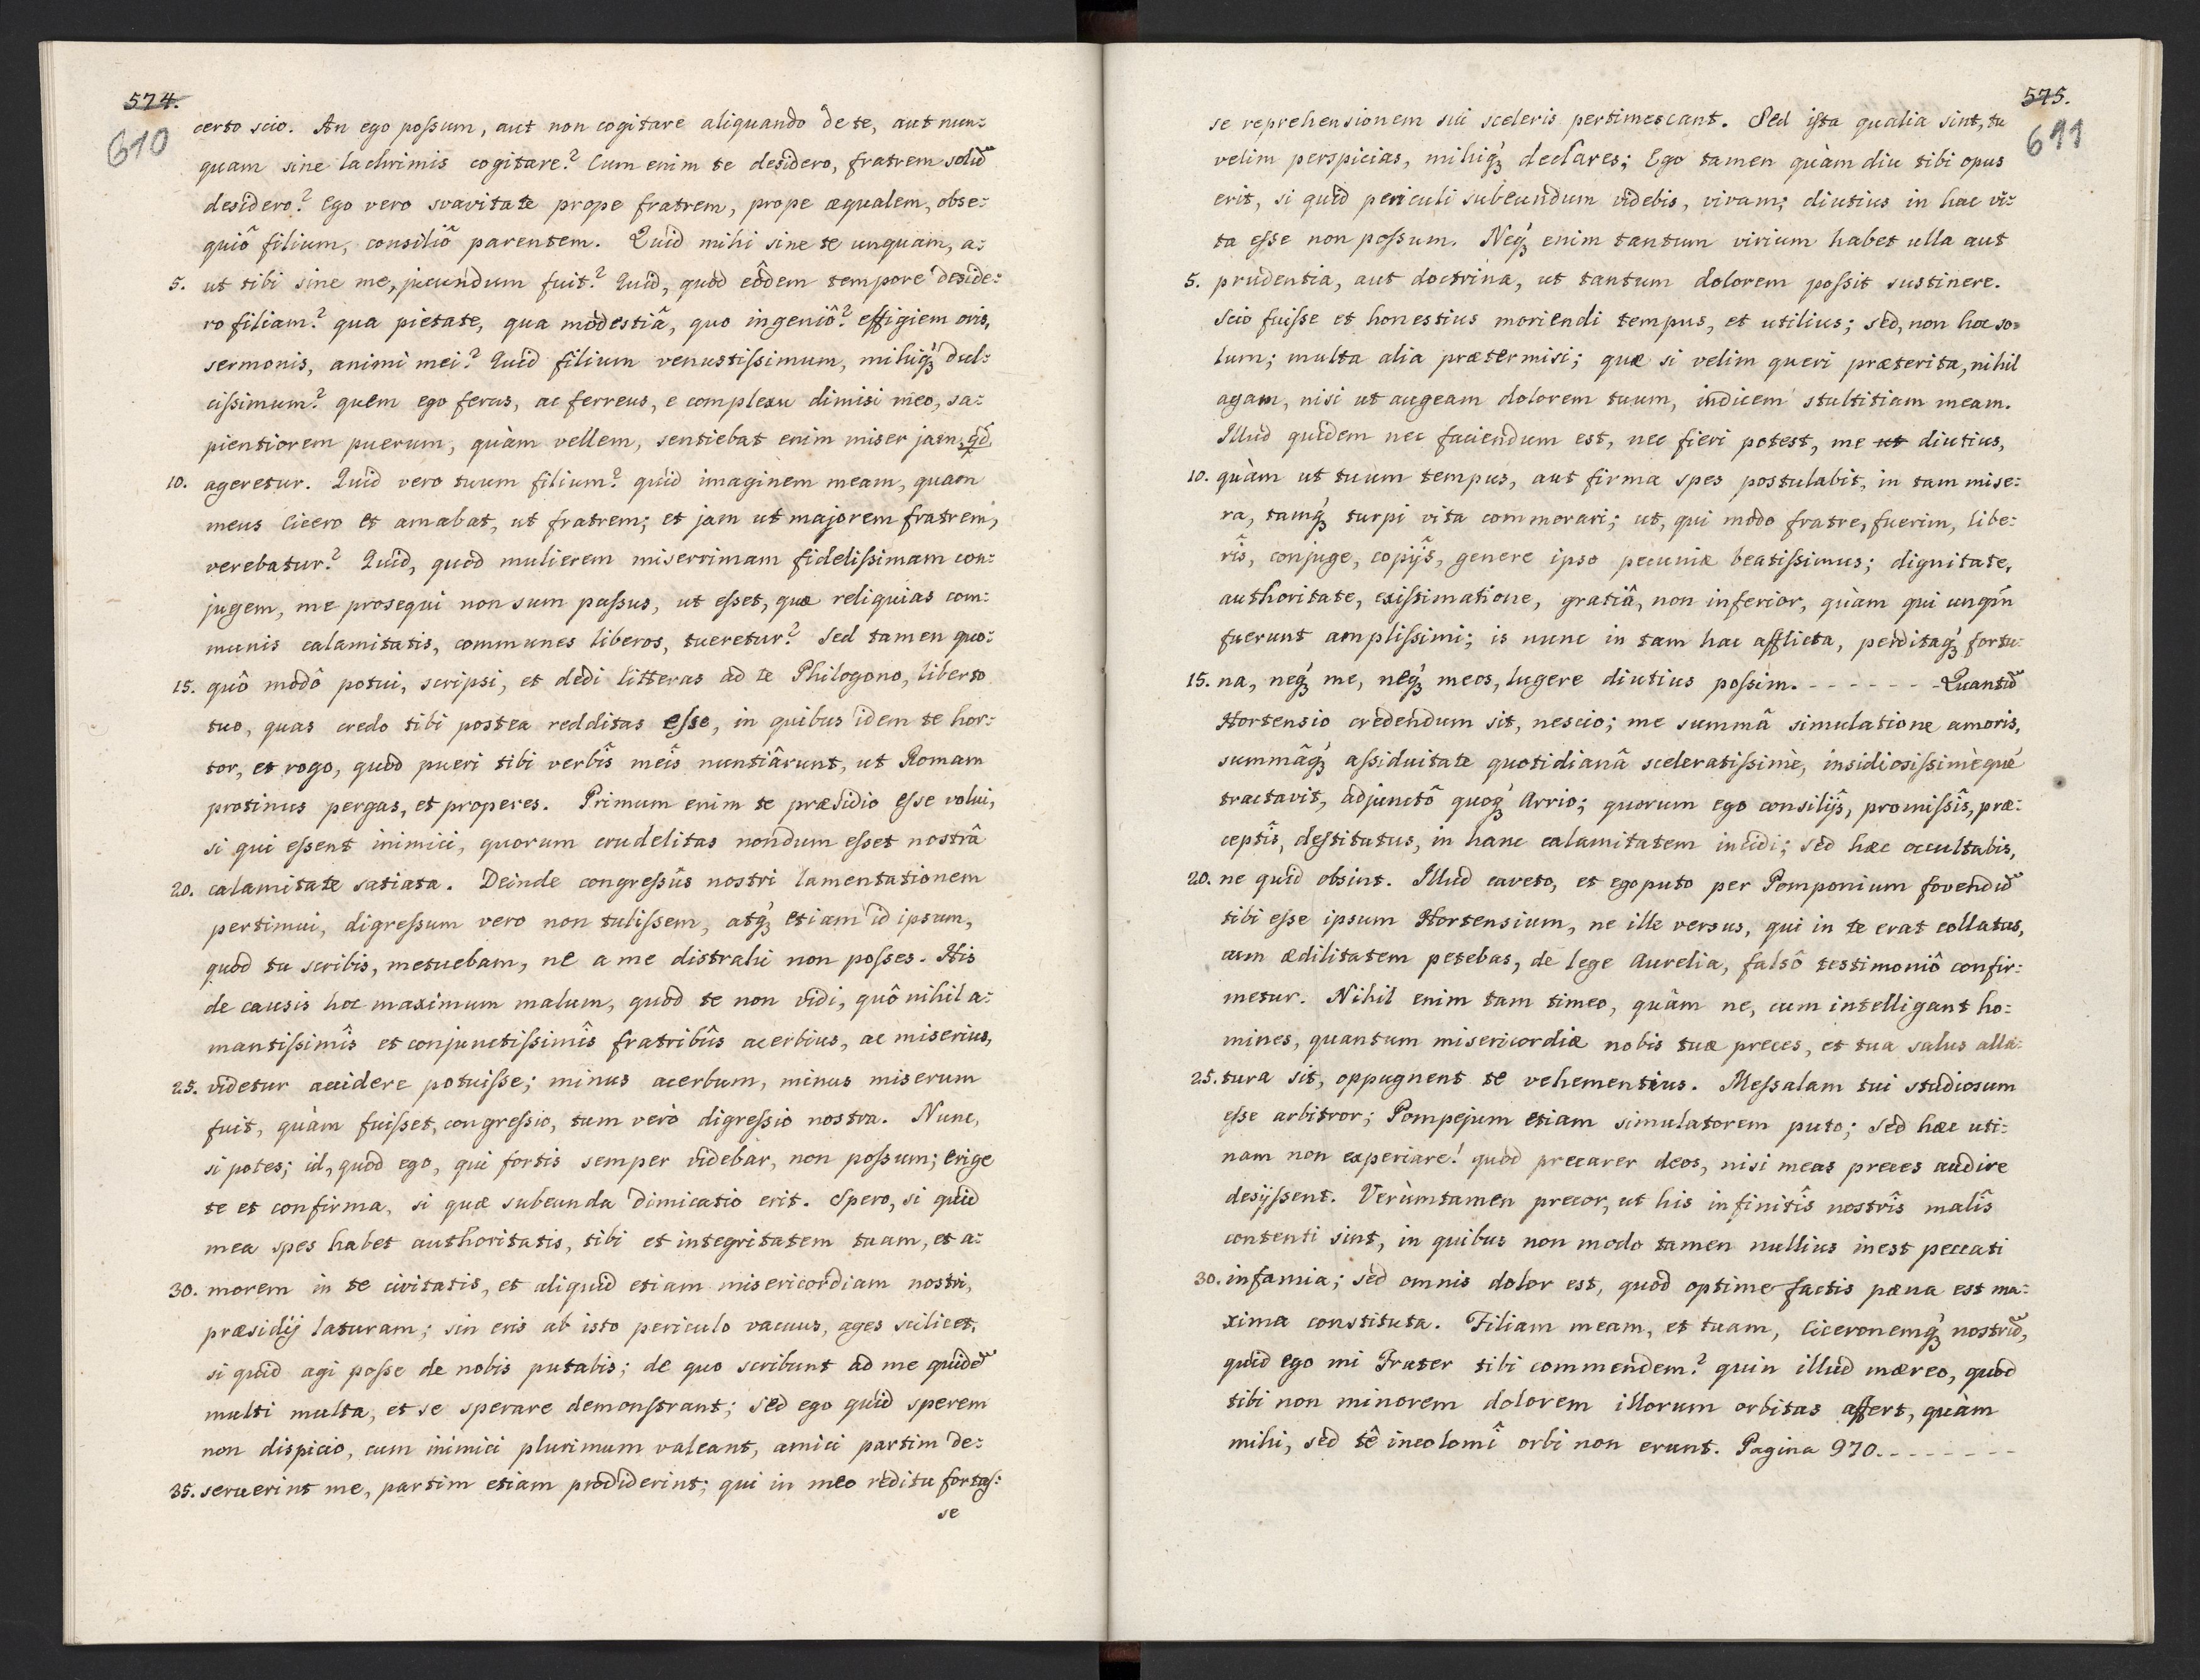 574.
610
certo scio. An ego poſsum, aut non cogitare aliquando de te, aut nun=
quam sine lachrimis cogitare? Cum enim te desidero, fratrem solũ
desidero? Ego vero svavitate prope fratrem, prope æqualem, obse=
quiô filium, consiliô parentem. Quid mihi sine te unquam, a=
5. ut tibi sine me, jucundum fuit? Quid, quod eôdem tempore deside=
ro filiam? qua pietate, qua modestiâ, quo ingeniô? effigiem oris,
sermonis, animi mei? Quid filium venustiſsimum, mihiq́ꝫ dul=
ciſsimum? quem ego ferus, ac ferreus, e complexu dimisi meo, sa=
pientiorem puerum, quàm vellem, sentiebat enim miser jam, qd
10. ageretur. Quid vero tuum filium? quid imaginem meam, quam
meus Cicero et amabat, ut fratrem; et jam ut majorem fratrem,
verebatur? Quid, quod mulierem miserrimam fideliſsimam con=
jugem, me prosequi non sum paſsus, ut eſset, quæ reliquias com=
munis calamitatis, communes liberos, tueretur? Sed tamen quo=
15. quô modô potui, scripsi, et dedi litteras ad te Philogono, liberto
tuo, quas credo tibi postea redditas eſse, in quibus idem te hor=
tor, et rogo, quod pueri tibi verbîs meîs nuntiârunt, ut Romam
protinus pergas, et properes. Primum enim te præsidio eſse volui,
si qui eſsent inimici, quorum crudelitas nondum eſset nostrâ
20. calamitate satiata. Deinde congreſsûs nostri lamentationem
pertimui, digreſsum vero non tuliſsem, atq́ꝫ etiam id ipsum,
quod tu scribis, metuebam, ne a me distrahi non poſses. His
de causis hoc maximum malum, quod te non vidi, quô nihil a=
mantiſsimîs et conjunctiſsimîs fratribûs acerbius, ac miserius,
25. videtur accidere potuiſse; minus acerbum, minus miserum
fuit, quàm fuiſset, congreſsio, tum verò digreſsio nostra. Nunc,
si potes; id, quod ego, qui fortis semper videbar, non poſsum; erige
te et confirma, si quæ subeunda dimicatio erit. Spero, si quid
mea spes habet authoritatis, tibi et integritatem tuam, et a=
30. morem in te civitatis, et aliquid etiam misericordiam nostri,
præsidij laturam; sin eris ab isto periculo vacuus, ages scilicet,
si quid agi poſse de nobis putabis; de quo scribunt ad me quidẽ
multi multa, et se sperare demonſtrant; sed ego quid sperem
non dispicio, cum inimici plurimum valeant, amici partim de=
35. seruerint me, partim etiam prodiderint; qui in meo reditu fortaſ=
se
575.
611
se reprehensionem sui sceleris pertimescant. Sed iſta qualia sint, tu
velim perspicias, mihiq́ꝫ declares; Ego tamen quàm diu tibi opus
erit, si quid periculi subeundum videbis, vivam; diutius in hac vi=
ta eſse non poſsum. Neq́ꝫ enim tantum virium habet ulla aut
5. prudentia, aut doctrina, ut tantum dolorem poſsit sustinere.
Scio fuiſse et honestius moriendi tempus, et utilius; sed, non hoc so=
lum; multa alia prætermisi; quæ si velim queri præterita, nihil
agam, nisi ut augeam dolorem tuum, indicem stultitiam meam.
Illud quidem nec faciendum est, nec fieri potest, me ut diutius,
10. quàm ut tuum tempus, aut firma spes postulabit, in tam mise=
ra, tamq́ꝫ turpi vita commorari; ut, qui modo fratre, fuerim, libe=
rîs, conjuge, copijs, genere ipso pecuniæ beatiſsimus; dignitate,
authoritate, exiſtimatione, gratiâ, non inferior, quàm qui unqm̃
fuerunt ampliſsimi; is nunc in tam hac afflicta, perditaq́ꝫ fortu=
15. na, neq́ꝫ me, neq́ꝫ meos, lugere diutius poſsim. - - - - - - - Quantũ
Hortensio credendum sit, nescio; me summâ simulatione amoris,
summâq́ꝫ aſsiduitate quotidianâ sceleratiſsimè, insidiosiſsimèque
tractavit, adjunctô quoq́ꝫ Arrio; quorum ego consilijs, promiſsîs, præ=
ceptîs, deſtitutus, in hanc calamitatem incidi; sed hæc occultabis,
20. ne quid obsint. Illud caveto, et ego puto per Pomponium fovendũ
tibi eſse ipsum Hortensium, ne ille versus, qui in te erat collatus,
cum ædilitatem petebas, de lege Aurelia, falsô testimoniô confir=
metur. Nihil enim tam timeo, quâm ne, cum intelligant ho=
mines, quantum misericordiæ nobis tuæ preces, et tua salus alla=
25. tura sit, oppugnent te vehementius. Meſsalam tui studiosum
eſse arbitror; Pompejum etiam simulatorem puto; sed hæc uti=
nam non experiare! quod precarer deos, nisi meas preces audire
desijſsent. Verùmtamen precor, ut his infinitîs nostrîs malîs
contenti sint, in quibus non modo tamen nullius inest peccati
30. infamia; sed omnis dolor est, quod optime factis pæna est ma=
xima constituta. Filiam meam, et tuam, Ciceronemq́ꝫ nostrũ,
quid ego mi Frater tibi commendem? quin illud mæreo, quod
tibi non minorem dolorem illorum orbitas affert, quàm
mihi, sed tê incolomî orbi non erunt. Pagina 970. - - - - - - -